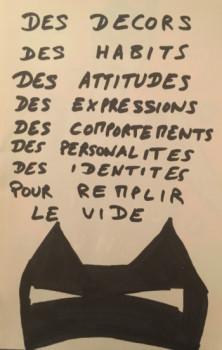 DES DECORS
DES HABITS
DES ATTITUDES
DES EXPRESSIONS
DES COMPORTEMENTS
DES PERSONALITES
DES IDENTITES
POUR REMPLIR
LE VIDE